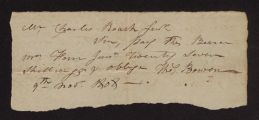 Mr Charles Roach Junr.
Sir, pay the Bearer
mr Thos Junr Twenty Seven
Shillings & oblige Thos. Bowen
9th Novr. 1808